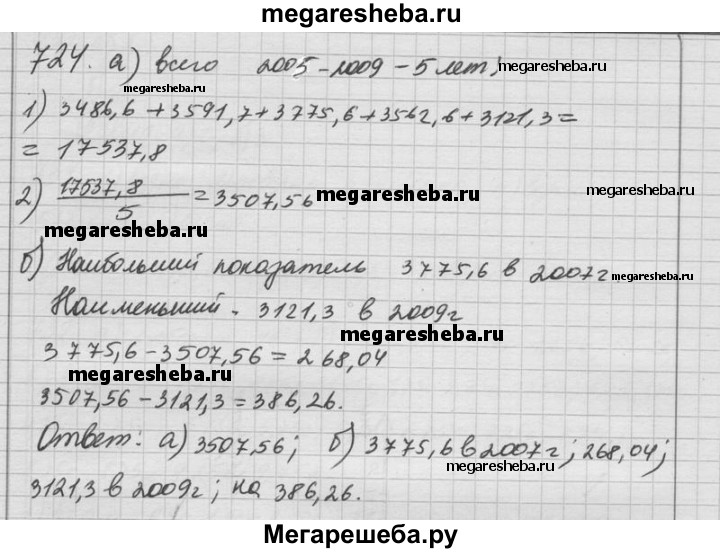 megaresheba.ru
724. а) всего 2005-2009 - 5 лет, megaresheba.ru
megaresheba.ru
1) 3486,6 + 3591,7 + 3775,6 + 3562,6 + 3121,3 =
= 17537,8
megaresheba.ru
2) 17537,8 / 5 = 3507,56 megaresheba.ru
megaresheba.ru
б) Наибольший показатель 3775,6 в 2007г megaresheba.ru
Наименьший - 3121,3 в 2009г
megaresheba.ru
3775,6 - 3507,56 = 268,04
megaresheba.ru
3507,56 - 3121,3 = 386,26.
Ответ: а) 3507,56; б) 3775,6 в 2007г; 268,04;
megaresheba.ru
3121,3 в 2009г; на 386,26.
Мегарешеба.ру